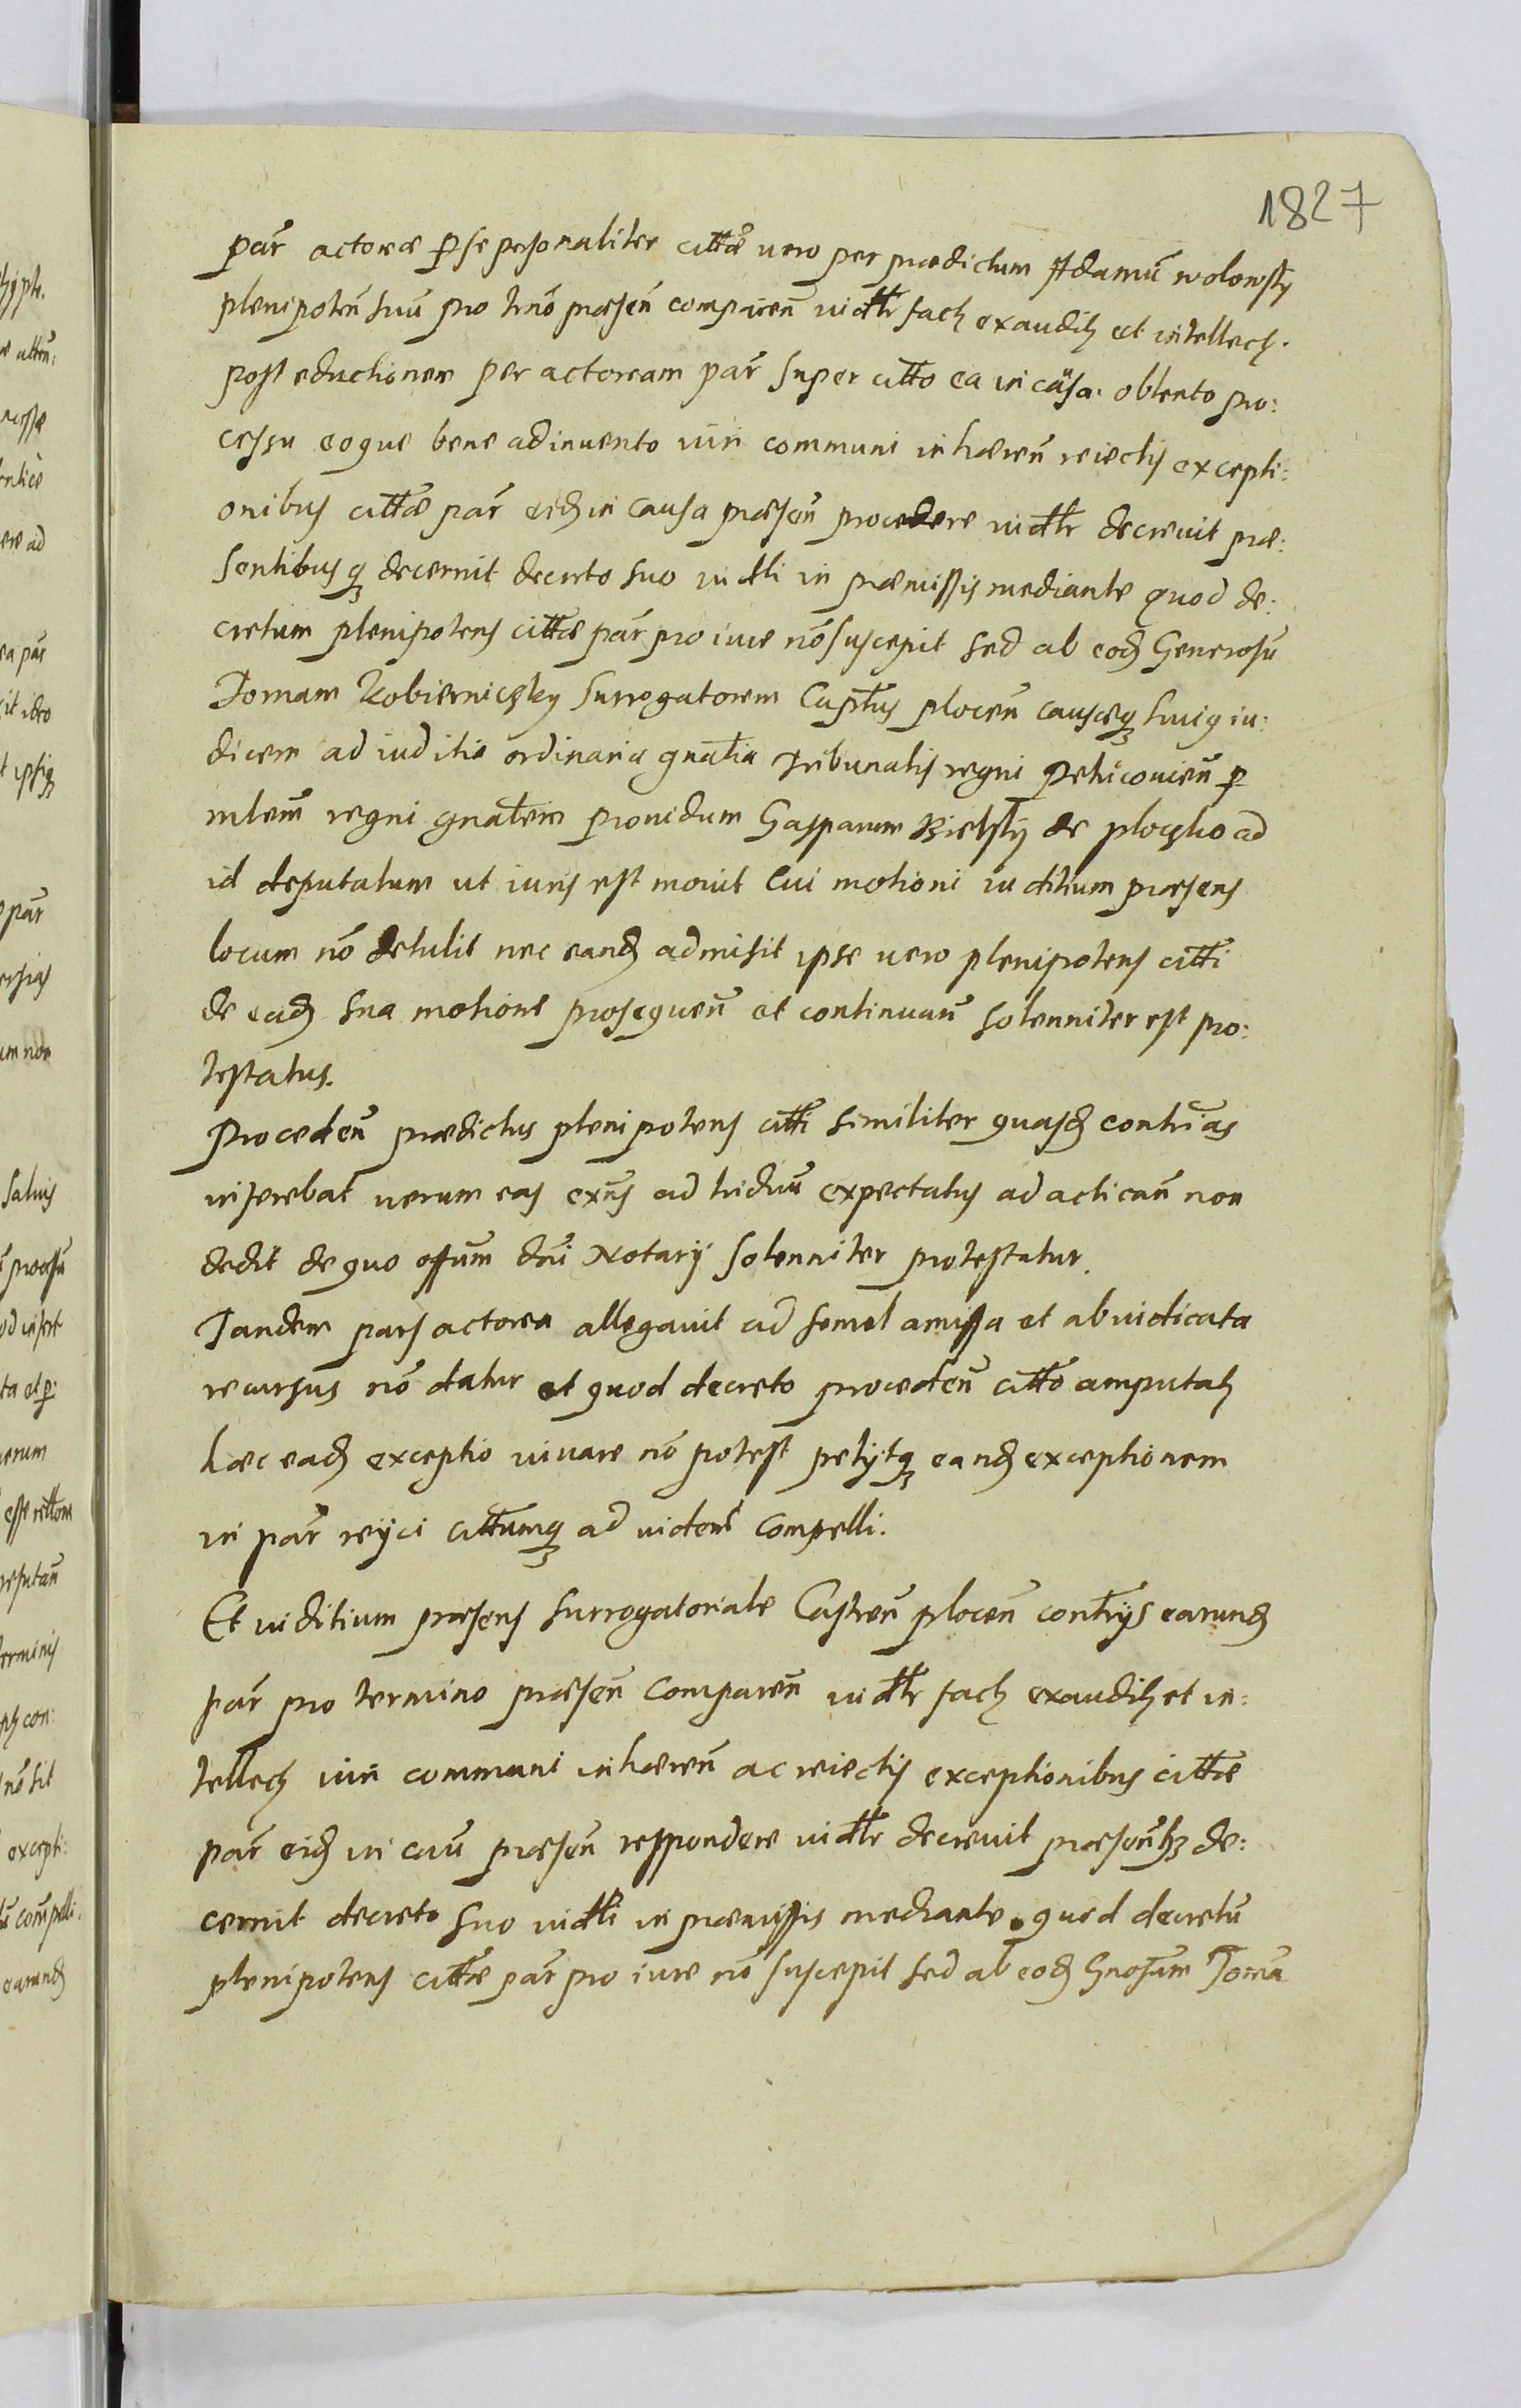 1827
par̃ actoreæ ꝑ se personaliter cittæ̃ uero per prædictum Adamũ wolowsky
plenipoten̄ suũ pro trñō præsen̄ comparen̄ iudltr̃ factꝫ exauditꝫ et intellectꝫ.
post eductionem per actoream par̃ super citto ea in cãusa. obtento pro:
cessu eoque bene adinuento iuri communi inhæren̄ reiectis excepti:
onibus cittæ par̃ eidꝫ in causa præsen̄ procedere iudltr̃ decreuit præ:
sentibusqꝫ decernit decreto suo iudtli in præmissis mediante quod de:
cretum plenipotens cittæ par̃ pro iure nõ suscepit sed ab eodꝫ Generosũ
Tomam Kobierniczky surrogatorem Captus plocen̄ causæqꝫ huiq iu:
dicem ad iuditia ordinaria gnalia Tribunalis regni Petricouien̄ ꝑ
mlem̃ regni gnalem prouidum Gasparum Bielsky de ploczko ad
id deputatum ut iuris est mouit Cui motioni iuditium præsens
locum nõ detulit nec eandꝫ admisit ipse uero plenipotens citti
de eadꝫ sua motione prosequen̄ et continuan̄ solenniter est pro:
testatus.
Proceden̄ prædictus plenipotens citti similiter quasdꝫ contrĩas
inserebat uerum eas exñs ad triduũ expectatus ad acticañ non
dedit de quo offum dñi Notarij solenniter protestatur.
Tandem pars actorea allegauit ad semel amissa et abiudicata
recursus nõ datur et quod decreto proceden̄ citto amputatꝫ
hæc eadꝫ exceptio iuuare nõ potest petijtqꝫ eandꝫ exceptionem
in par̃ reijci cittumqꝫ ad uidend̃ compelli.
Et iuditium præsens surrogatoriale Castren̄ plocen̄ contrijs earundꝫ
par̃ pro termino præsen̄ comparen̄ iudltr̃ factꝫ exauditꝫ et in:
tellectꝫ iuri communi inhæren̄ ac reiectis exceptionibus cittæ
par̃ eidꝫ in cau̅ præsen̄ respondere iudltr̃ decreuit præsentbꝫ de:
cernit decreto suo iudtli in præmissis mediante. quod decretũ
plenipotens cittæ par̃ pro iure nõ suscepit sed ab eodꝫ Gnosum Tomã